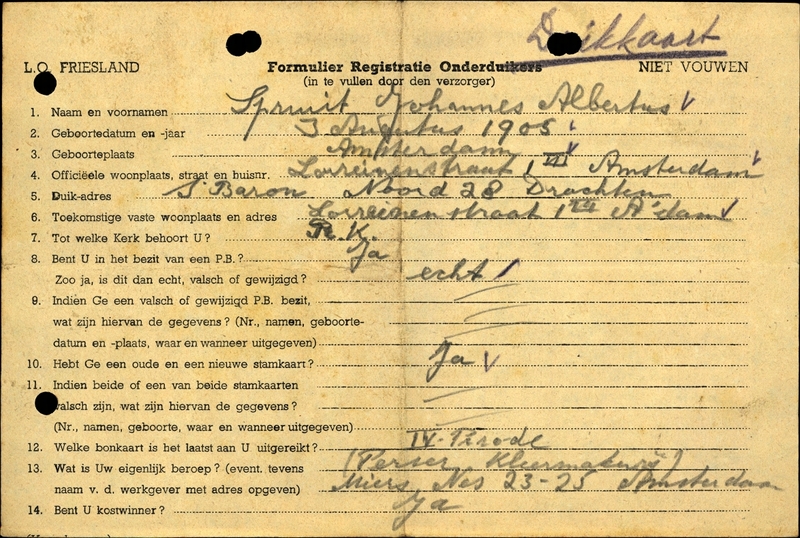 Duikkaart
L.O. FRIESLAND Formulier Registratie Onderduikers NIET VOUWEN
(in te vullen door den verzorger)
1. Naam en voornamen Spruit Johannes Albertus
2. Geboortedatum en -jaar 3 Augustus 1905
3. Geboorteplaats Amsterdam
4. Officiëele woonplaats, straat en huisnr. Lorreinenstraat 1 III Amsterdam
5. Duik-adres S. Baron Noord 28 Drachten
6. Toekomstige vaste woonplaats en adres Lorreinenstraat 1 A'dam
7. Tot welke Kerk behoort U? R.K.
8. Bent U in het bezit van een P.B.? Ja
Zoo ja, is dit dan echt, valsch of gewijzigd? echt
9. Indien Ge een valsch of gewijzigd P.B. bezit,
wat zijn hiervan de gegevens? (Nr., namen, geboorte-
datum en -plaats, waar en wanneer uitgegeven)
10. Hebt Ge een oude en een nieuwe stamkaart? Ja
11. Indien beide of een van beide stamkaarten
valsch zijn, wat zijn hiervan de gegevens?
(Nr., namen, geboorte, waar en wanneer uitgegeven)
12. Welke bonkaart is het laatst aan U uitgereikt? IV-Perode
13. Wat is Uw eigenlijk beroep? (event. tevens (Perser
naam v. d. werkgever met adres opgeven) Miers, Nes 23-25 Amsterdam
14. Bent U kostwinner? Ja